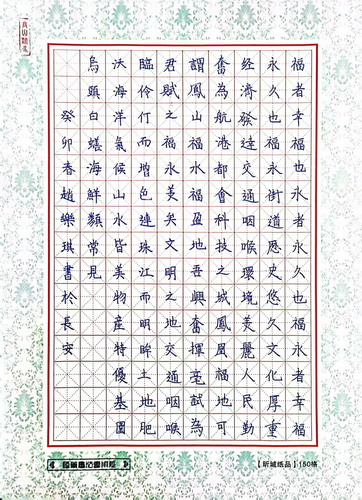 福者幸福也永者永久也福永者幸福
永久也福永街道歷史悠久文化厚重
经济發達交通咽喉環境美麗人民勤
奮為航港都會科技之城鳳凰福地可
謂鳳山福永福盈地吾興奮揮毫試為
君賦之福永美矣文明之地交通咽喉
臨伶仃而增色連珠江而明眸土地肥
沃海洋氣候山水皆美物産特優基圍
烏頭白蟮海鮮類常見
癸卯春趙樂琪書於長安
【昕城纸品】150格